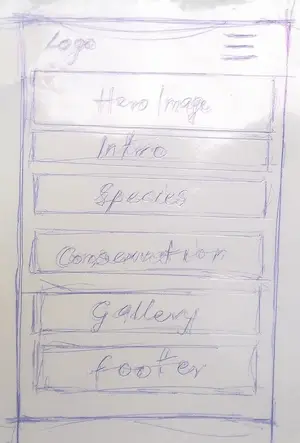 Logo
Hero Image
Intro
Species
Conservation
Gallery
footer